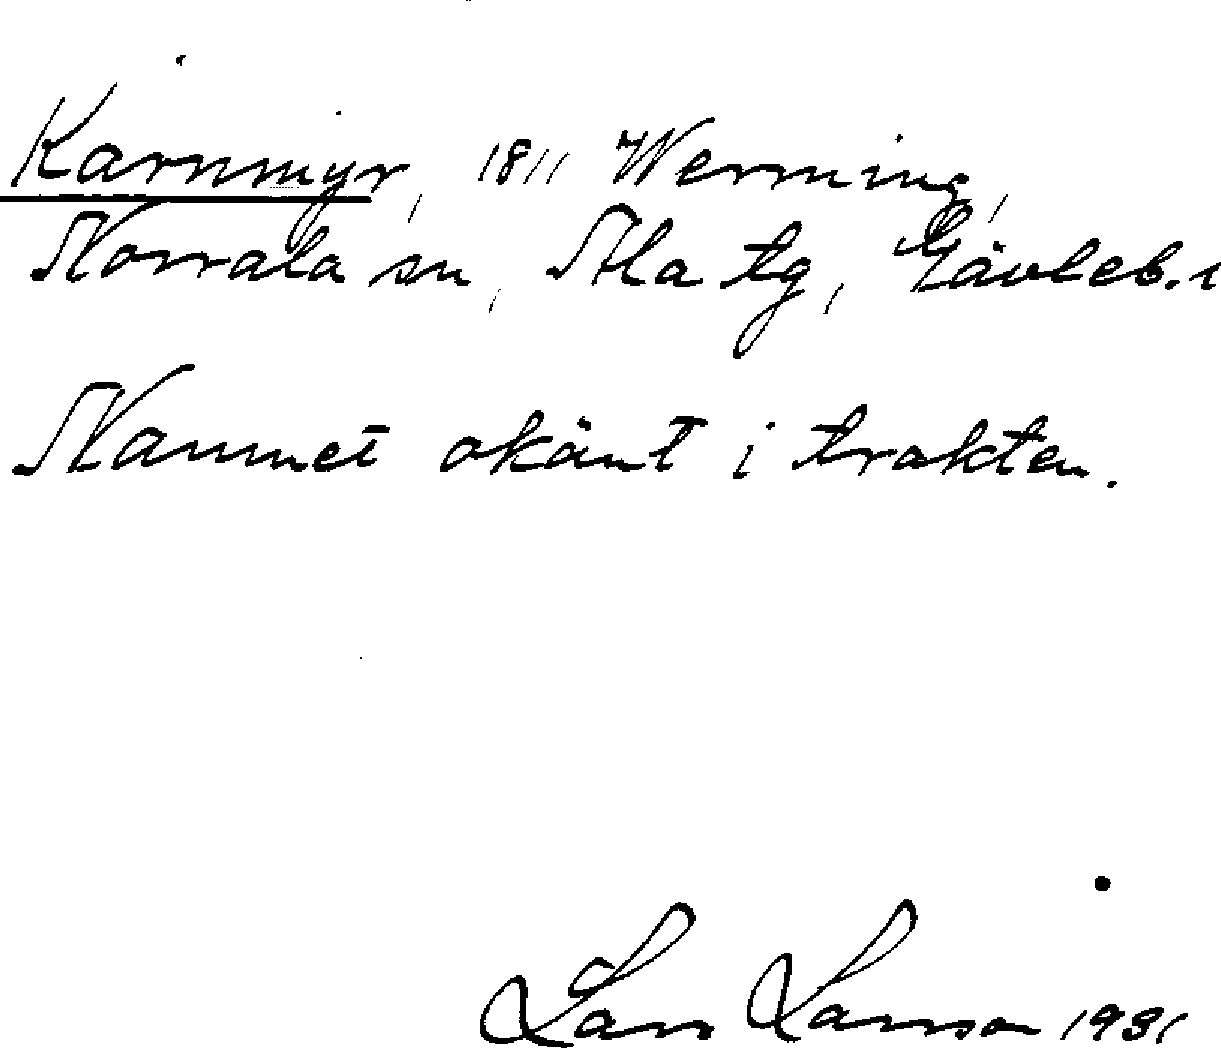 Karnmyr, 1811 Werming,
Norrala sn, Ala tg, Gävleb.l
Namnet okänt i trakten.
Lars Larsson 1931